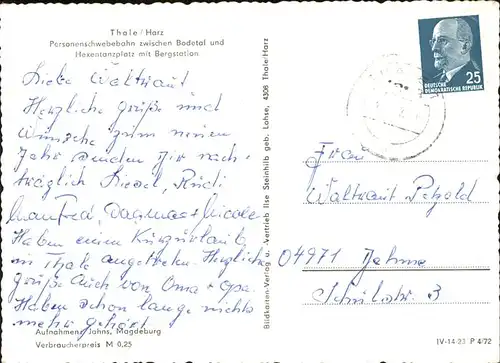 Thale/Harz
Personenschwebebahn zwischen Bodetal und
Hexentanzplatz mit Bergstation
Liebe Waltraut
Herzliche Grüße und
Wünsche zum neuen
Jahr senden Dir nach-
träglich Liesel, Rudi
Manfred, Dagmar + Nicole
Haben einen Kurzurlaub
in Thale angetreten. Herzliche
Grüße auch von Oma + Opa.
Haben schon lange nichts
mehr gehört
Aufnahmen: Jahns, Magdeburg
Verbraucherpreis M 0,25
Bildkarten-Verlag u. -Vertrieb Ilse Steinhilb geb. Lohse, 4308 Thale/Harz
25
DEUTSCHE
DEMOKRATISCHE REPUBLIK
Frau
Waltraut Petzold
04971 Jahna
Schulstr. 3
IV-14-23 P 4/72